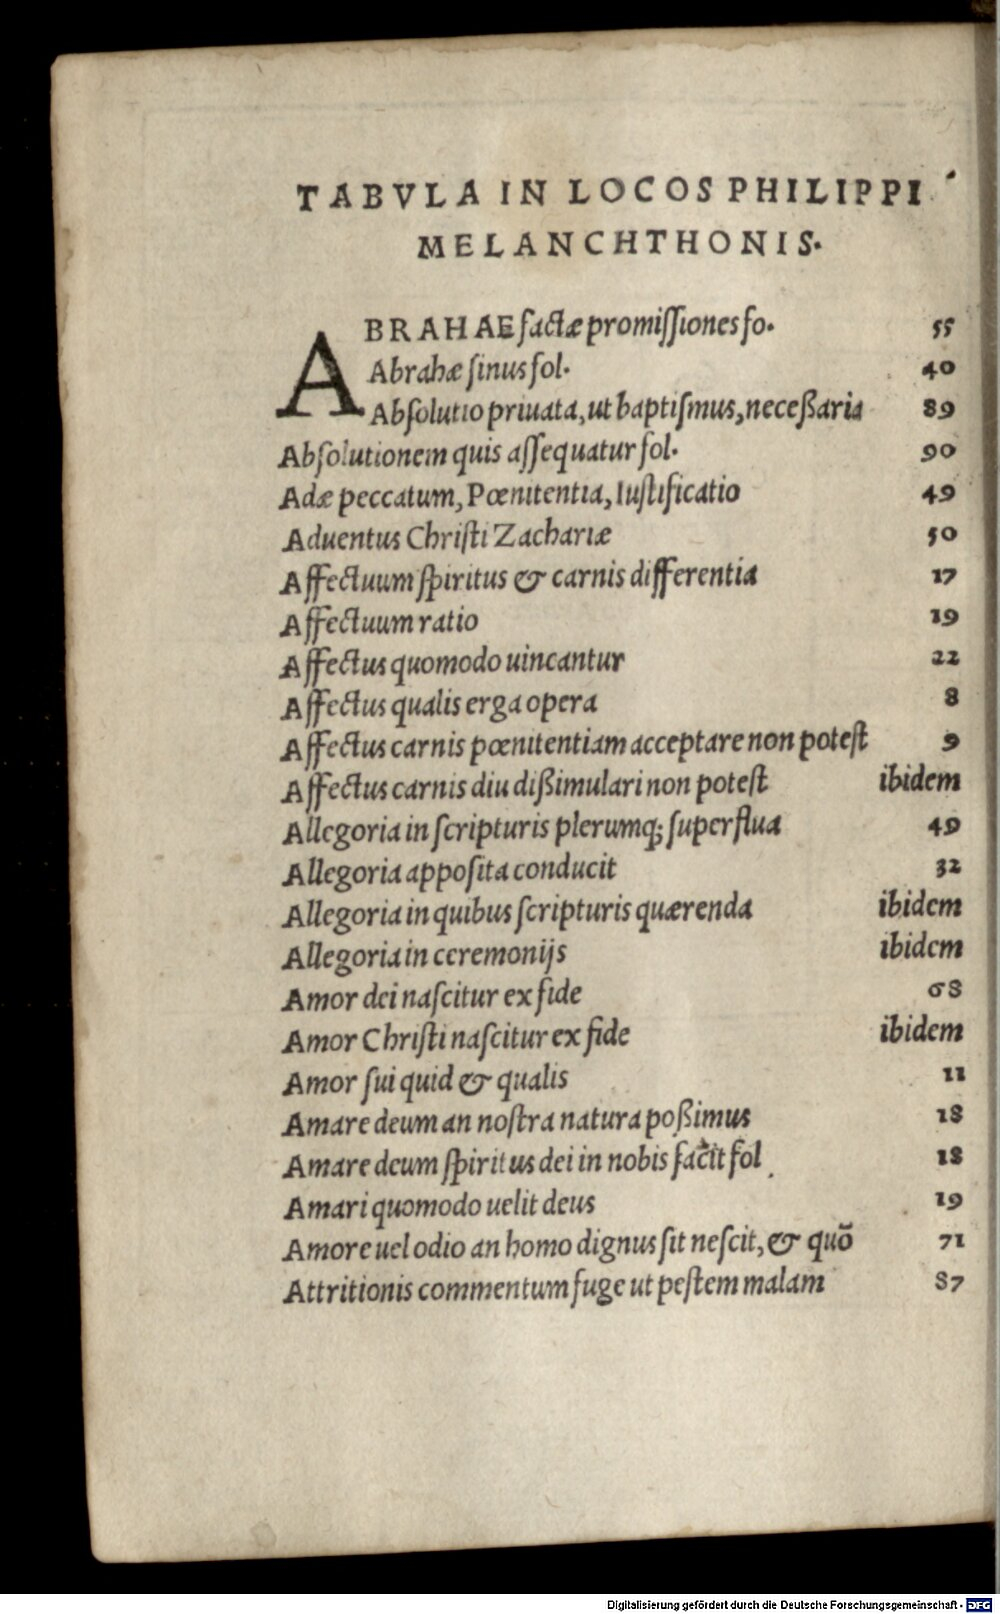 TABVLA IN LOCOS PHILIPPI
MELANCHTHONIS.
ABRAHAE factæ promissiones fo. 55
Abrahæ sinus fol. 40
Absolutio priuata, ut baptismus, neceßaria 89
Absolutionem quis assequatur fol. 90
Adæ peccatum, Pœnitentia, Iustificatio 49
Aduentus Christi Zachariæ 50
Affectuum spiritus & carnis differentia 17
Affectuum ratio 19
Affectus quomodo uincantur 22
Affectus qualis erga opera 8
Affectus carnis pœnitentiam acceptare non potest 9
Affectus carnis diu dißimulari non potest ibidem
Allegoria in scripturis plerumq; superflua 49
Allegoria apposita conducit 32
Allegoria in quibus scripturis quærenda ibidem
Allegoria in ceremonijs ibidem
Amor dei nascitur ex fide 68
Amor Christi nascitur ex fide ibidem
Amor sui quid & qualis 11
Amare deum an nostra natura poßimus 18
Amare deum spiritus dei in nobis facit fol 18
Amari quomodo uelit deus 19
Amore uel odio an homo dignus sit nescit, & quō 71
Attritionis commentum fuge ut pestem malam 87
Digitalisierung gefördert durch die Deutsche Forschungsgemeinschaft - DFG